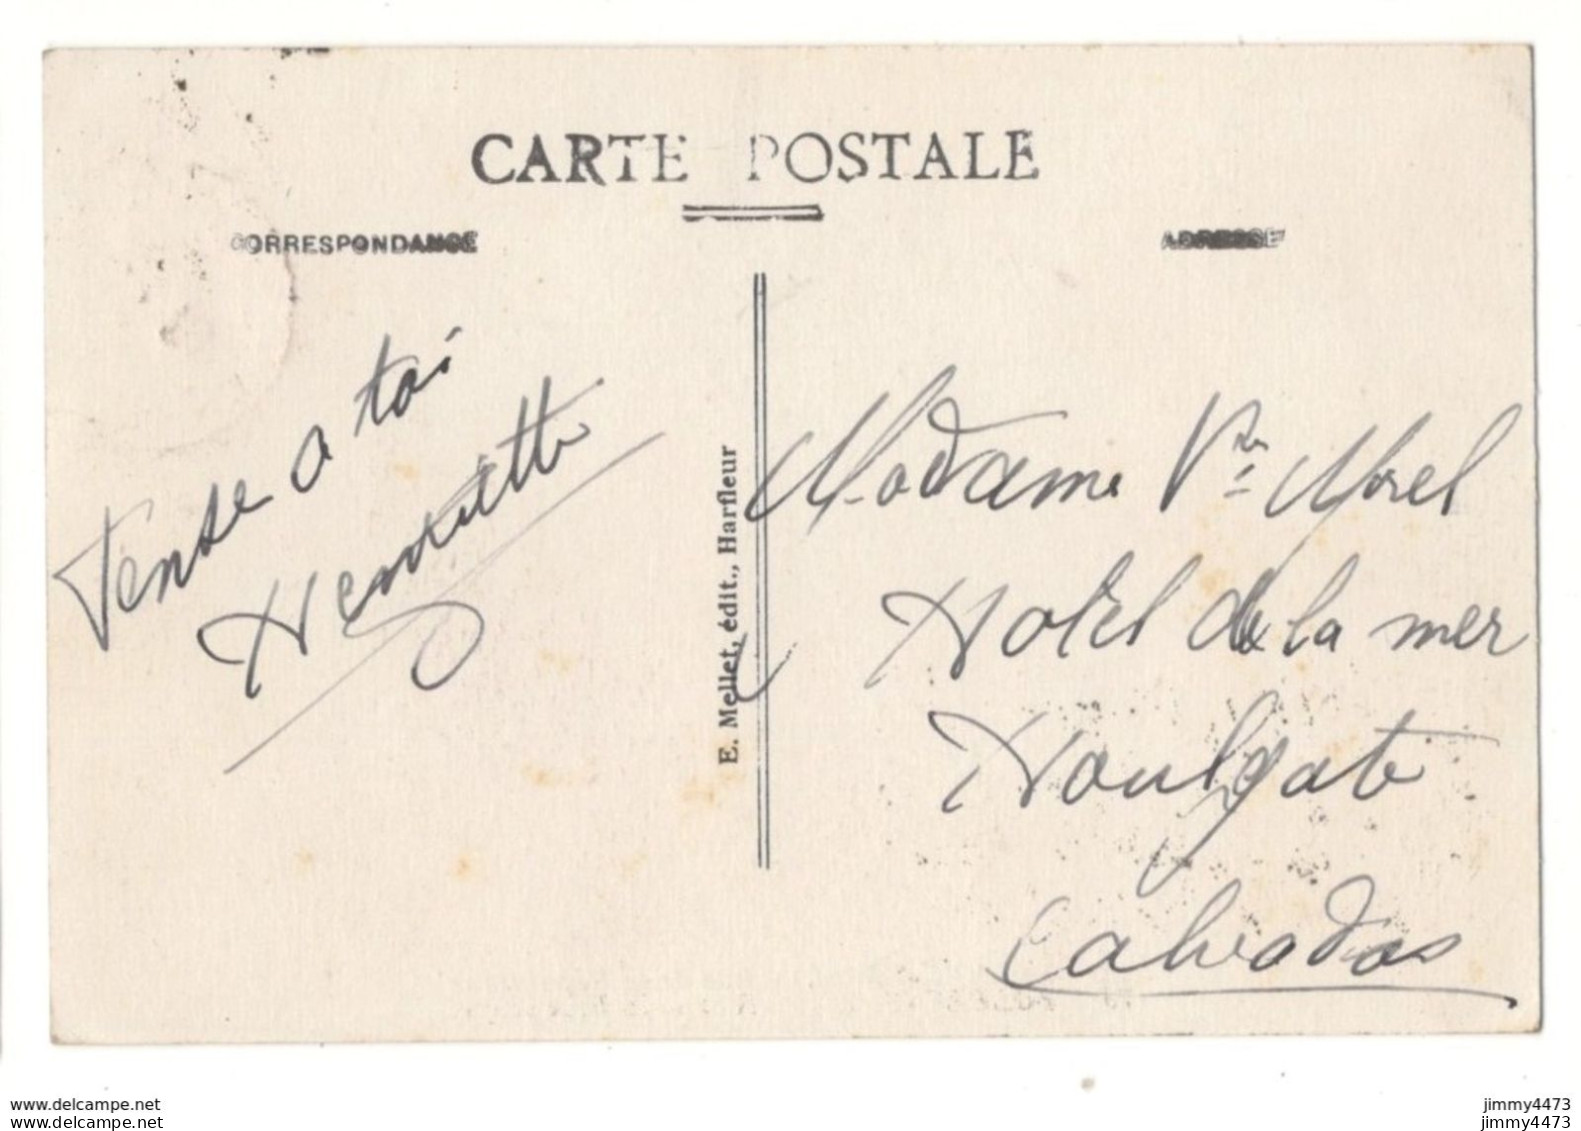 CARTE POSTALE
CORRESPONDANCE
ADRESSE
Pense a toi
Henriette
E. Mellet, édit., Harfleur
Madame Vve Morel
Hotel de la mer
Houlgate
Calvados
www.delcampe.net
www.delcampe.net
jimmy4473
jimmy4473